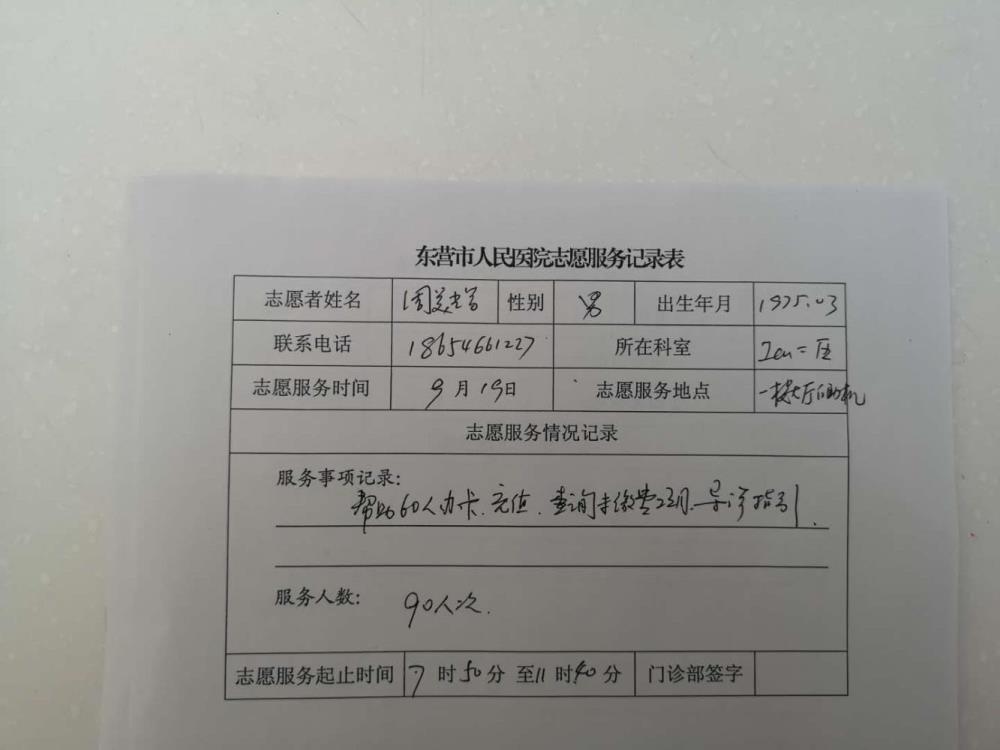 东营市人民医院志愿服务记录表
志愿者姓名 周 性别 男 出生年月 1975.03
联系电话 18654661227 所在科室 Icu二区
志愿服务时间 9月19日 志愿服务地点 一楼大厅自助机
志愿服务情况记录
服务事项记录:
帮助60人办卡.充值.查询未缴费.导诊指引.
服务人数: 90人次.
志愿服务起止时间 7时50分至11时40分 门诊部签字